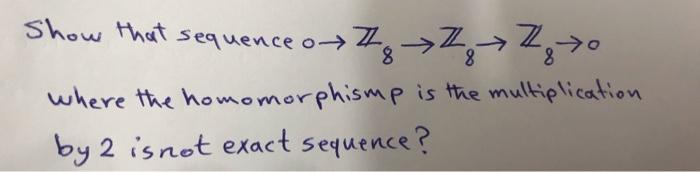 Show that sequence o→ ℤ₈ →ℤ₈→ ℤ₈→o
where the homomorphismp is the multiplication
by 2 isnot exact sequence?